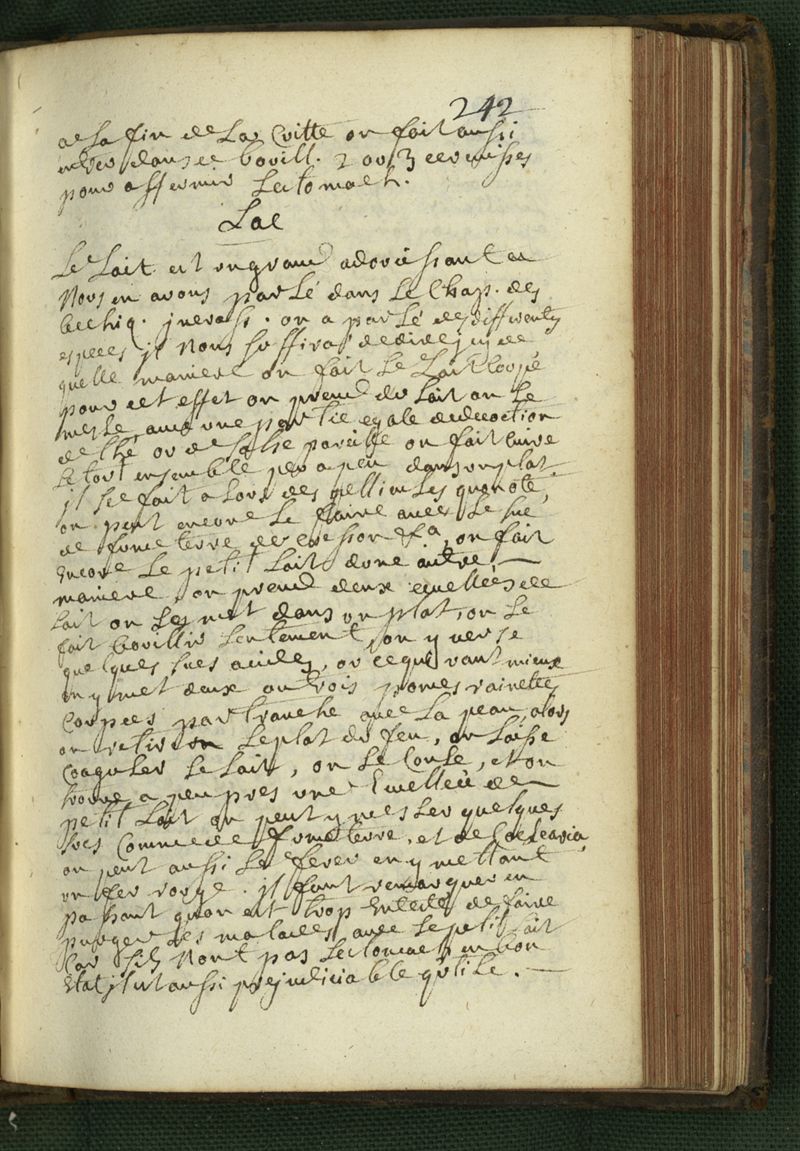 242
a la fin de la Cuitte on fait aussi
entrer dans ce bovill. 2 ov 3 ecrevisses
pour affermir Lestomach.
Lac
Le Lait est un grand adovcissant en
Novs en avons parlé dans Le Chap. des
bechiq. on a parlé des differentes
especes jl Nous suffira de dire jcy de
quelle maniere on fait Le Lait Coupé
pour cet effet on prend du Lait on Le
mesle avec vne partie egale de decoction
de thé ov de salse pareille on fait Cuire
Le tovt ensemble pev a peu dans vn plat
jl se fait alors des pellicules quon ote,
on peut encore Le faire avec Le suc
de fumeterre de cresson &a, on fait
encore Le petit Lait d'vne autre
maniere, on prend deux ecuellées de
Lait on Les met dans vn plat, on Le
fait bovillir Lentement, on y verse
quelques sucs acides, ov ce qui vaut mieux
on y met deux ou trois pomes rainettes
Coupées par tranche avec La peau, alors
on retire Le plat du feu, on Laisse
Coaguler Le Lait, on Le Coule, et on
trouve a peu pres vne Ecuellée de
petit Lait on peut y mesler quelques
sucs Comme de fumeterre, et de Coclearia,
on peut aussi Le ferrer en y mettant
vn fer rovge. jl faut remarquer en
passant quon est trop Entété de faire
purger Les malades avec Le petit Lait
Car sils Nont pas Lestomac en bon
Etat jl est aussi prejudiciable qutile.